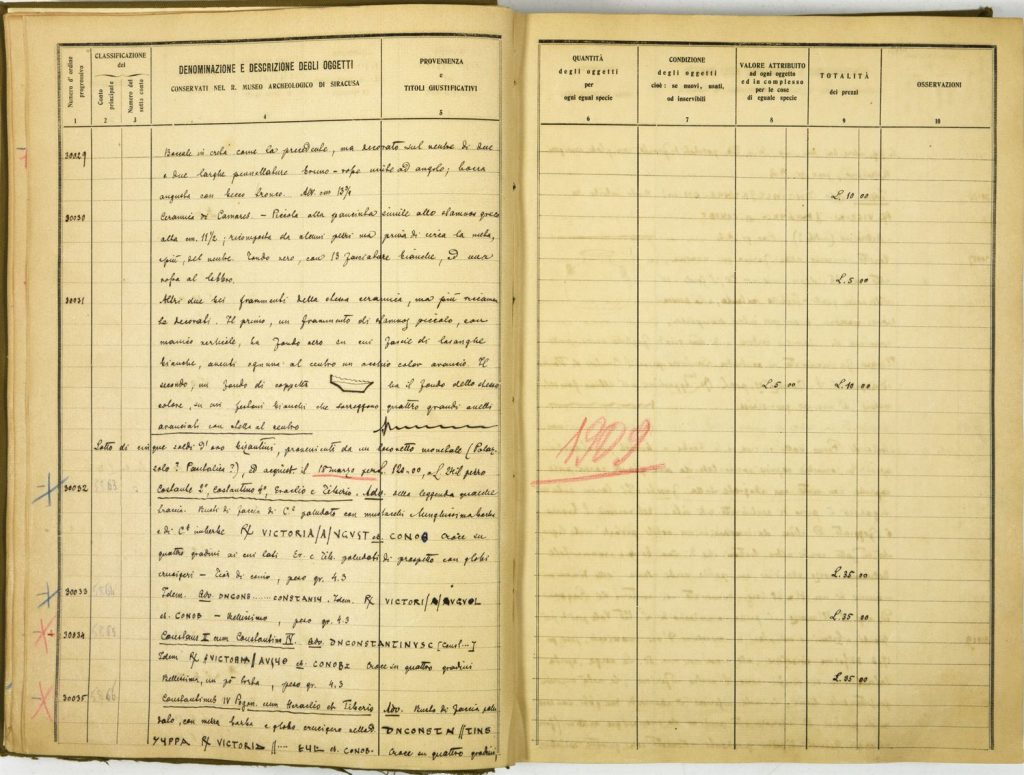 Numero d'ordine progressivo
CLASSIFICAZIONE
del
Conto principale
Numero del sotto conto
DENOMINAZIONE E DESCRIZIONE DEGLI OGGETTI
CONSERVATI NEL R. MUSEO ARCHEOLOGICO DI SIRACUSA
PROVENIENZA
e
TITOLI GIUSTIFICATIVI
QUANTITÀ
degli oggetti
per
ogni egual specie
CONDIZIONE
degli oggetti
cioè: se nuovi, usati,
od inservibili
VALORE ATTRIBUITO
ad ogni oggetto
ed in complesso
per le cose
di eguale specie
TOTALITÀ
dei prezzi
OSSERVAZIONI
1 2 3 4 5 6 7 8 9 10
30029 Boccale in creta come la precedente, ma decorato sul ventre di due
e due larghe pennellature bruno-rosse unite ad angolo; bocca
angusta con becco tronco. Alt. cm. 13¾ L. 10 00
30030 Ceramica di Camares. – Piccola olla panciuta simile allo stamnos greco
alta cm. 11½; ricomposta da alcuni pezzi ma priva di circa la metà,
e più, del ventre. Fondo nero, con 13 fasciature bianche, ed una
rossa al labbro. L. 5 00
30031 Altri due bei frammenti della stessa ceramica, ma più riccamen
te decorati. Il primo, un frammento di stamnos piccolo, con
manico verticale, ha fondo nero su cui fascie di losanghe
bianche, aventi ognuna al centro un occhio color arancio. Il
secondo, un fondo di coppetta ha il fondo dello stesso L. 5 00 L. 10 00
colore, su cui festoni bianchi che sorreggono quattro grandi anelli
aranciati con stella al centro
1909
Lotto di cinque soldi d'oro bizantini, proveniente da un tesoretto monetale (Palaz
zolo? Pantalica?), ed acquist. il 18 marzo per L. 120.00, e L. 24 il pezzo
30032 Costante 2°, Costantino 4°, Eraclio e Tiberio. Adv. della leggenda qualche
traccia. Busti di faccia di C.e paludato con mustacchi e lunghissima barba
e di C.e imberbe R/ VICTORIA/A/VGVST et. CONOB Croce su
quattro gradini ai cui lati Er. e Tib. paludati di prospetto con globi
crucigeri – Fior di conio, peso gr. 4.3 L. 35 00
30033 Idem. Adv. DNCONS...... CONSTANIY. Idem. R/ VICTORI/A/AVGVOL
et. CONOB – Bellissimo, peso gr. 4.3 L. 35 00
30034 Constans II cum Constantino IV. Adv. DNCONSTANTINVSC [const...]
Idem R/ AVICTORIA/AVSYΘ et. CONOB Croce su quattro gradini
Bellissimo, un pò torba, peso gr. 4.3 L. 35 00
30035 Constantinus IV Pogon. cum Heraclio et Tiberio Adv. Busto di faccia palu
dato, con mezza barba e globo crucigero nella d. DNCONSTA//TINS
R/ VICTORI et. CONOB. Croce su quattro gradini,